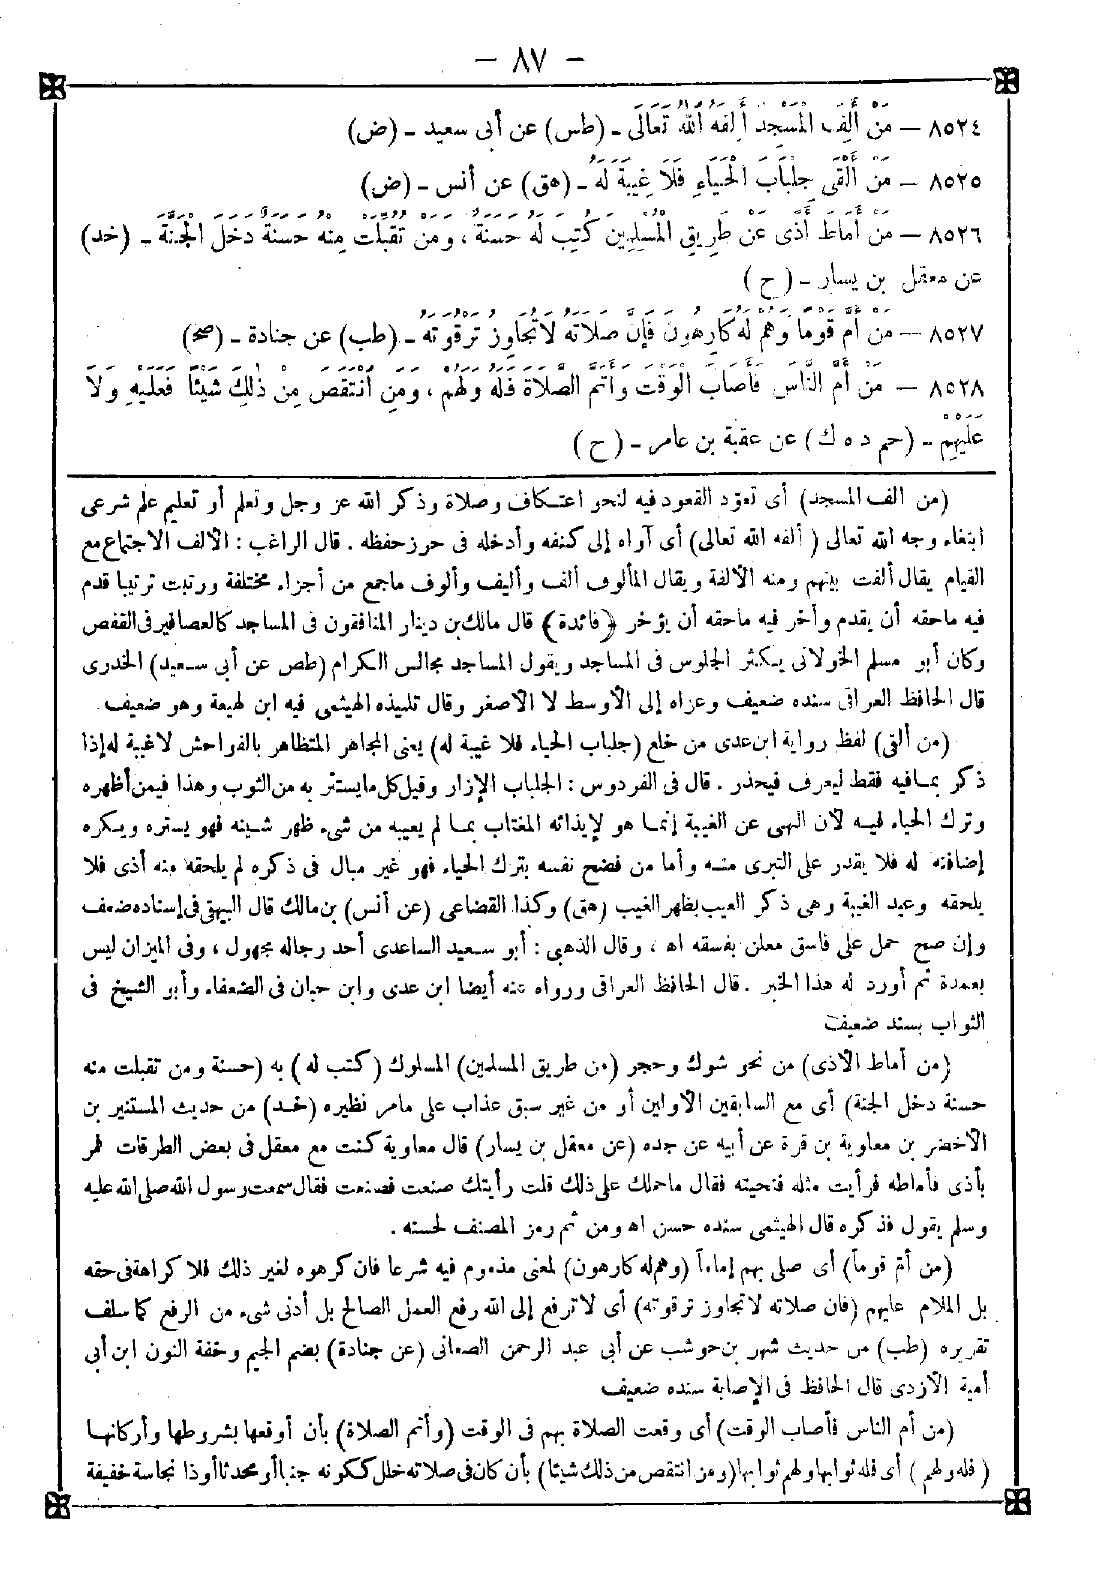 – ٨٧ –
٨٥٢٤ – مَنْ أَلِفَ الْمَسْجِدَ أَلِفَهُ اللهُ تَعَالَى – (طس) عن أبى سعيد – (ض)
٨٥٢٥ – مَنْ أَلْقَى جِلْبَابَ الْحَيَاءِ فَلَا غِيبَةَ لَهُ – (هق) عن أنس – (ض)
٨٥٢٦ – مَنْ أَمَاطَ أَذًى عَنْ طَرِيقِ الْمُسْلِمِينَ كُتِبَ لَهُ حَسَنَةٌ ، وَمَنْ تُقُبِّلَتْ مِنْهُ حَسَنَةٌ دَخَلَ الْجَنَّةَ – (خد)
عن معقل بن يسار – (ح)
٨٥٢٧ – مَنْ أَمَّ قَوْمًا وَهُمْ لَهُ كَارِهُونَ فَإِنَّ صَلَاتَهُ لَا تُجَاوِزُ تَرْقُوَتَهُ – (طب) عن جنادة – (صح)
٨٥٢٨ – مَنْ أَمَّ النَّاسَ فَأَصَابَ الْوَقْتَ وَأَتَمَّ الصَّلَاةَ فَلَهُ وَلَهُمْ ، وَمَنِ انْتَقَصَ مِنْ ذَٰلِكَ شَيْئًا فَعَلَيْهِ وَلَا
عَلَيْهِمْ – (حم د ه ك) عن عقبة بن عامر – (ح)
(من ألف المسجد) أى تعوّد القعود فيه لنحو اعتكاف وصلاة وذكر الله عز وجل وتعلم أو تعليم علم شرعى
ابتغاء وجه الله تعالى (ألفه الله تعالى) أى آواه إلى كنفه وأدخله فى حرز حفظه . قال الراغب : الألف الاجتماع مع
القيام يقال ألفت بينهم ومنه الألفة ويقال المألوف ألف وأليف وألوف ماجمع من أجزاء مختلفة ورتبت ترتيبا قدم
فيه ماحقه أن يقدم وأخر فيه ماحقه أن يؤخر (فائدة) قال مالك بن دينار المنافقون فى المساجد كالعصافير فى القفص
وكان أبو مسلم الخولانى يكثر الجلوس فى المساجد ويقول المساجد مجالس الكرام (طص عن أبى سعيد) الخدرى
قال الحافظ العراقى سنده ضعيف وعزاه إلى الأوسط لا الأصغر وقال تلميذه الهيثمى فيه ابن لهيعة وهو ضعيف .
(من ألقى) لفظ رواية ابن عدى من خلع (جلباب الحياء فلا غيبة له) يعنى المجاهر المتظاهر بالفواحش لاغيبة له إذا
ذكر بمافيه فقط ليعرف فيحذر . قال فى الفردوس : الجلباب الإزار وقيل كل مايستتر به من الثوب وهذا فيمن أظهره
وترك الحياء فيه لأن النهى عن الغيبة إنما هو لإيذائه المغتاب بما لم يعيبه من شىء ظهر شينه فهو يستره ويكره
إضافته له فلا يقدر على التبرى منه وأما من فضح نفسه بترك الحياء فهو غير مبال فى ذكره لم يلحقه منه أذى فلا
يلحقه وعيد الغيبة وهى ذكر العيب بظهر الغيب (هق) وكذا القضاعى (عن أنس) بن مالك قال البيهقى فى إسناده ضعف
وإن صح حمل على فاسق معلن بفسقه اه ، وقال الذهبى : أبو سعيد الساعدى أحد رجاله مجهول ، وفى الميزان ليس
بعمدة ثم أورد له هذا الخبر . قال الحافظ العراقى ورواه عنه أيضا ابن عدى وابن حبان فى الضعفاء وأبو الشيخ فى
الثواب بسند ضعيف
(من أماط الأذى) من نحو شوك وحجر (من طريق المسلمين) المسلوك (كتب له) به (حسنة ومن تقبلت منه
حسنة دخل الجنة) أى مع السابقين الأولين أو من غير سبق عذاب على مامر نظيره (خد) من حديث المستنير بن
الأخضر بن معاوية بن قرة عن أبيه عن جده (عن معقل بن يسار) قال معاوية كنت مع معقل فى بعض الطرقات فمر
بأذى فأماطه فرأيت مثله فنحيته فقال ماحملك على ذلك قلت رأيتك صنعت فصنعت فقال سمعت رسول الله صلى الله عليه
وسلم يقول فذكره قال الهيثمى سنده حسن اه ومن ثم رمز المصنف لحسنه .
(من أمّ قوماً) أى صلى بهم إماماً (وهم له كارهون) لمعنى مذموم فيه شرعا فان كرهوه لغير ذلك فلا كراهة فى حقه
بل الملام عليهم (فان صلاته لا تجاوز ترقوته) أى لا ترفع إلى الله رفع العمل الصالح بل أدنى شىء من الرفع كما سلف
تقريره (طب) من حديث شهر بن حوشب عن أبى عبد الرحمن الصنعانى (عن جنادة) بضم الجيم وخفة النون ابن أبى
أمية الأزدى قال الحافظ فى الإصابة سنده ضعيف
(من أم الناس فأصاب الوقت) أى وقعت الصلاة بهم فى الوقت (وأتم الصلاة) بأن أوقعها بشروطها وأركانها
(فله ولهم) أى فله ثوابها ولهم ثوابها (ومن انتقص من ذلك شيئا) بأن كان فى صلاته خلل ككونه جنبا أو محدثا أو ذا نجاسة خفيفة